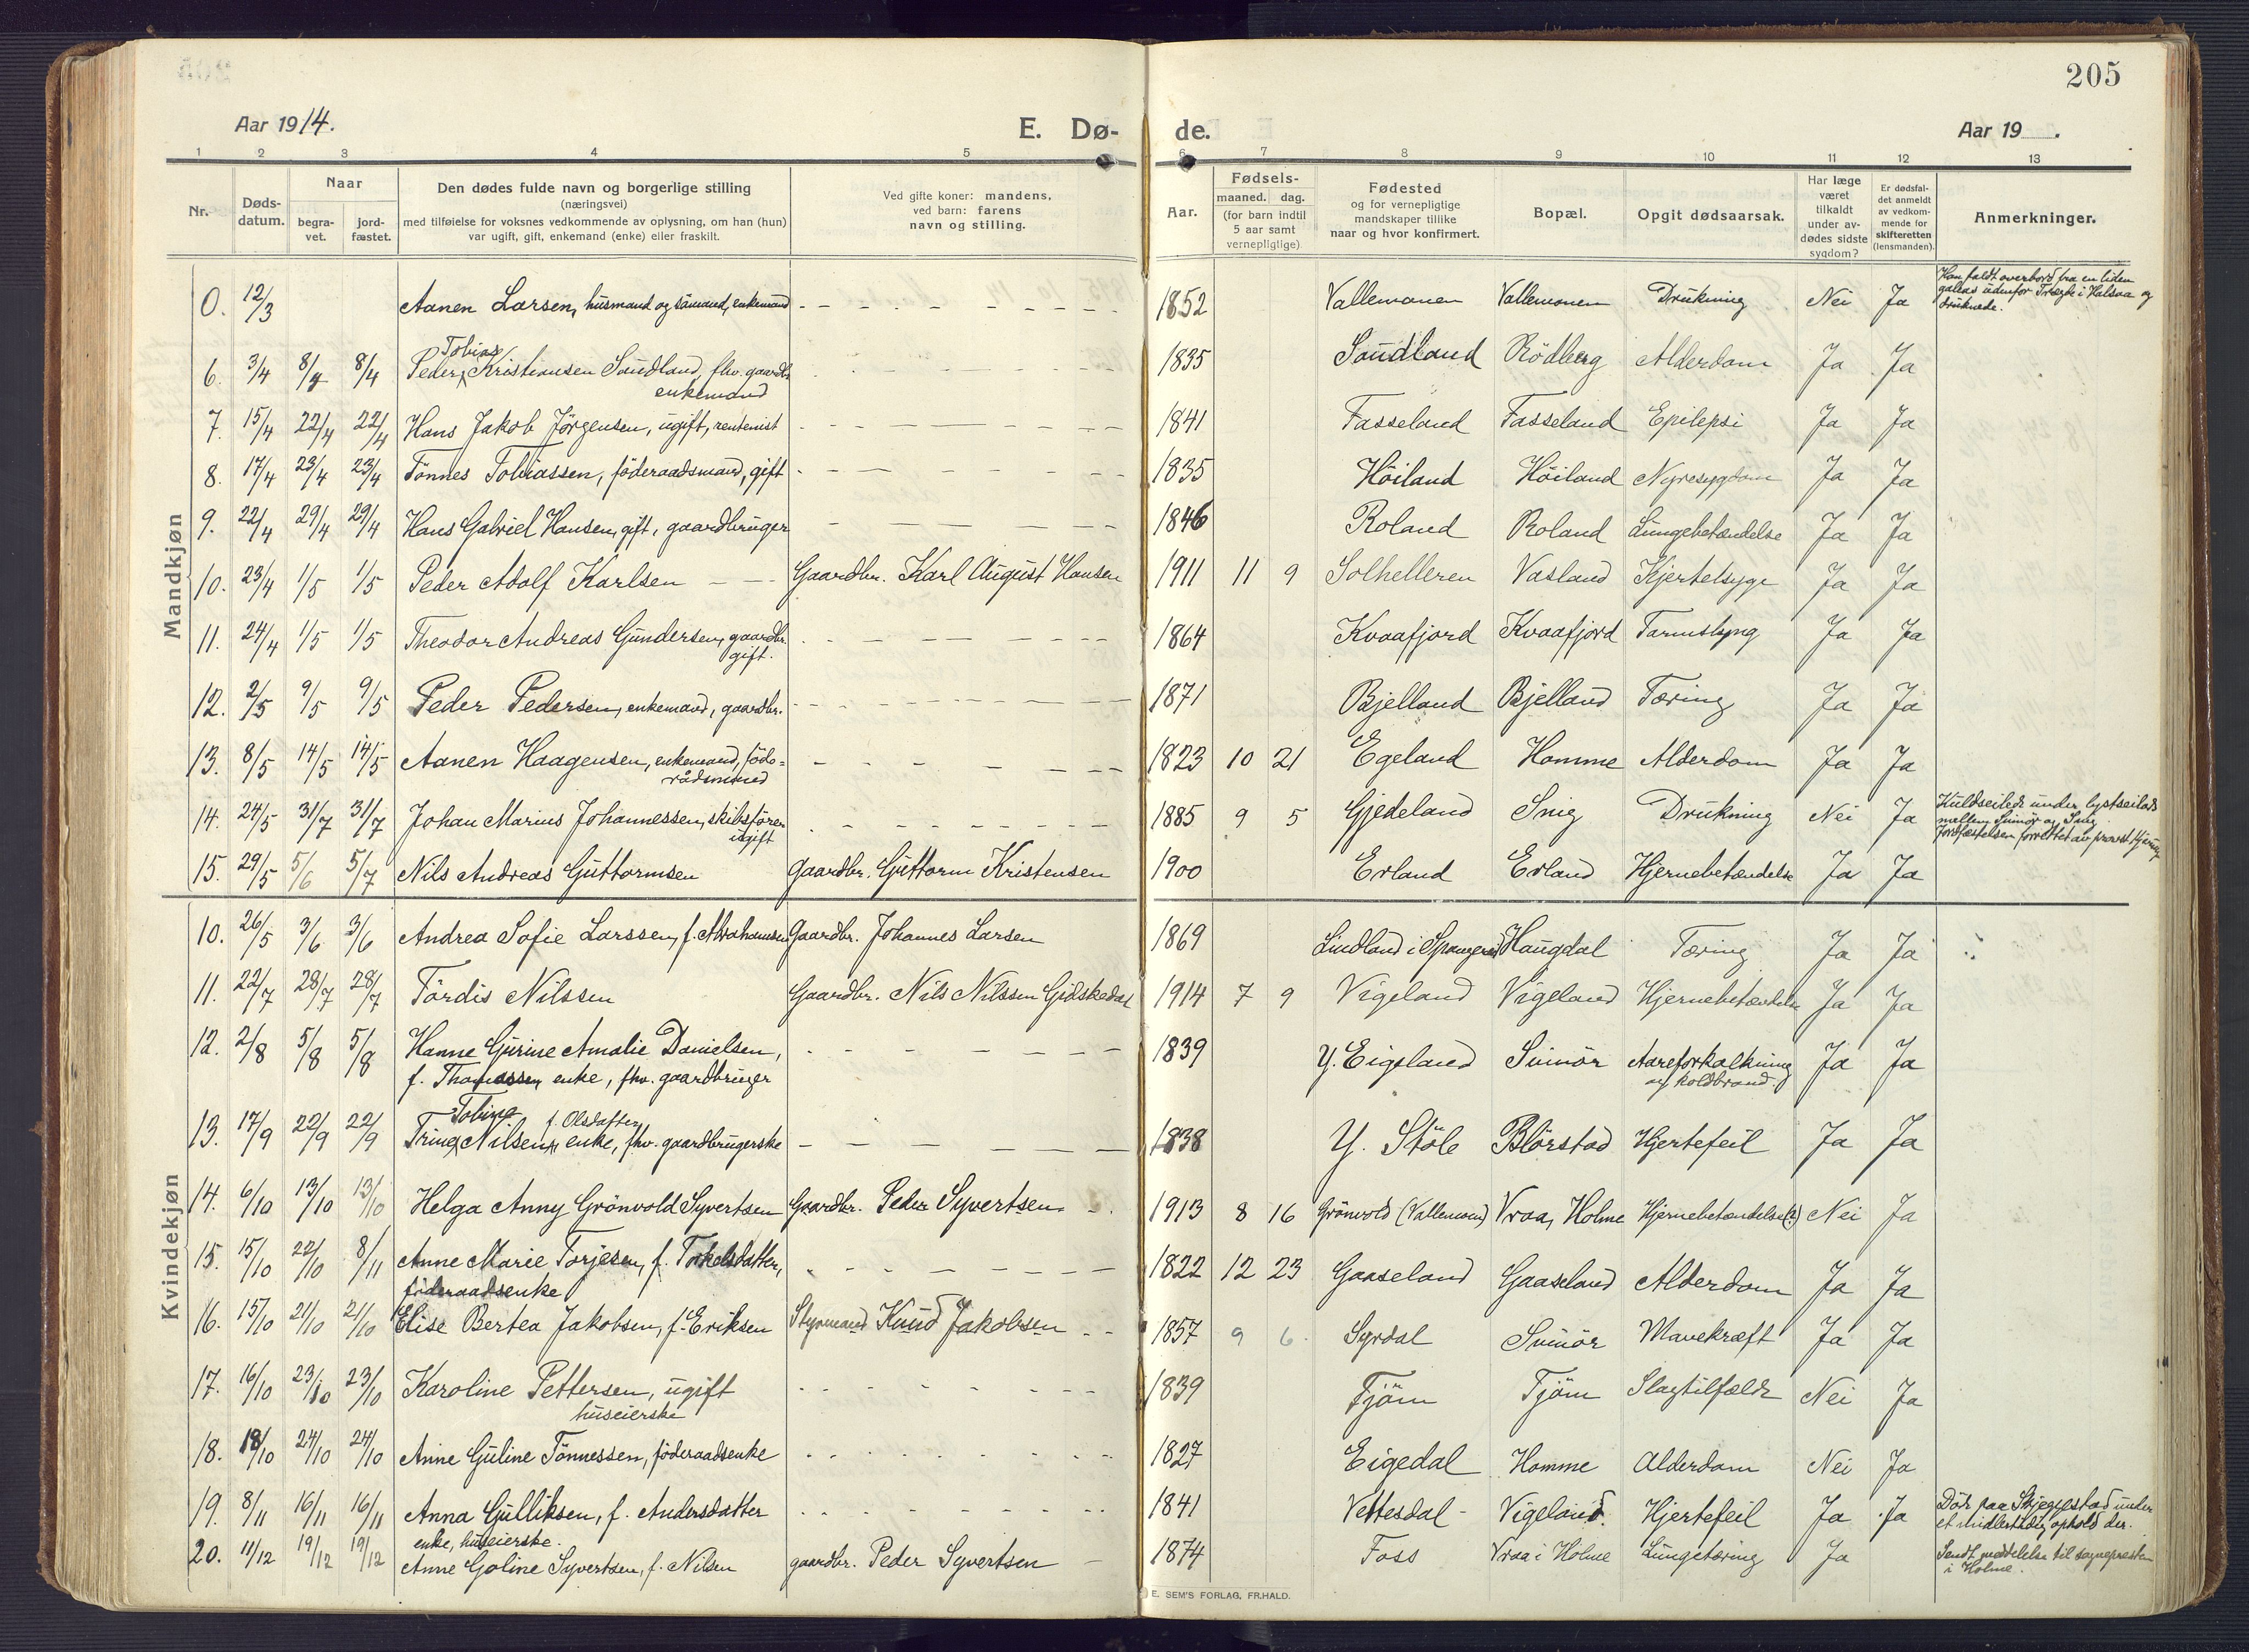 205
Aar 1914.
E. Dø-
de.
Aar 19 .
1 2 3 4 5 6 7 8 9 10 11 12 13
Nr.
Døds-
datum.
Naar
begra-
vet.
jord-
fæstet.
Den dødes fulde navn og borgerlige stilling
(næringsvei)
med tilføielse for voksnes vedkommende av oplysning, om han (hun)
var ugift, gift, enkemand (enke) eller fraskilt.
Ved gifte koner: mandens,
ved barn: farens
navn og stilling.
Aar.
Fødsels-
maaned. dag.
(for barn indtil
5 aar samt
vernepligtige)
Fødested
og for vernepligtige
mandskaper tillike
naar og hvor konfirmert.
Bopæl.
Opgit dødsaarsak.
Har læge
været
tilkaldt
under av-
dødes sidste
sygdom?
Er dødsfal-
det anmeldt
av vedkom-
mende for
skifteretten
(lensmanden).
Anmerkninger.
Mandkjøn
0. 12/3 Aanen Larsen, husmand og sömand, enkemand 1852 Vallemonen Vallemonen Drukning Nei Ja Han faldt overbord fra en liden
galeas udenfor i Halsaa og
druknede.
Tobias
6. 3/4 8/4 8/4 Peder Kristiansen Sandland, fhv. gaardbr. 1835 Sandland Rödberg Alderdom Ja Ja
enkemand
7. 15/4 22/4 22/4 Hans Jakob Jörgensen, ugift, rentenist 1841 Fasseland Fasseland Epilepsi Ja Ja
8. 17/4 23/4 23/4 Tönnes Tobiassen, föderaadsmand, gift 1835 Höiland Höiland Nyresygdom Ja Ja
9. 22/4 29/4 29/4 Hans Gabriel Hansen, gift, gaardbruger 1846 Roland Roland Lungebetændelse Ja Ja
10. 23/4 1/5 1/5 Peder Adolf Karlsen Gaardbr. Karl August Hansen 1911 11 9 Solhelleren Vasland Kjertelsyge Ja Ja
11. 24/4 1/5 1/5 Theodor Andreas Gundersen, gaardbr. 1864 Kvaafjord Kvaafjord Tarmslyng Ja Ja
gift.
12. 2/5 9/5 9/5 Peder Pedersen, enkemand, gaardbr. 1871 Bjelland Bjelland Tæring Ja Ja
13. 8/5 14/5 14/5 Aanen Haagensen, enkemand, föde- 1823 10 21 Egeland Homme Alderdom Ja Ja
rådsmand
14. 24/5 31/7 31/7 Johan Marius Johannessen, skibsförer 1885 9 5 Gjedeland Snig Drukning Nei Ja Kuldseilede under lystseilads
ugift mellem Svinör og Snig.
Jordfæstelsen forrettet av provst
15. 29/5 5/6 5/7 Nils Andreas Guttormsen Gaardbr. Guttorm Kristensen 1900 Erland Erland Hjernebetændelse Ja Ja
Kvindekjøn
10. 26/5 3/6 3/6 Andrea Sofie Larssen, f. Abrahamsen Gaardbr. Johannes Larsen 1869 Lindland i Spangereid Haugdal Tæring Ja Ja
11. 22/7 28/7 28/7 Tördis Nilssen Gaardbr. Nils Nilssen Gidskedal 1914 7 9 Vigeland Vigeland Hjernebetændelse Ja Ja
12. 2/8 5/8 5/8 Hanne Gurine Amalie Danielsen, 1839 Y. Eigeland Svinör Aareforkalkning Ja Ja
f. Thomassen, enke, fhv. gaardbruger og koldbrand.
Tobine f. Olsdatter
13. 17/9 22/9 22/9 Trine Nilsen, enke, fhv. gaardbrugerske 1838 Y. Stöle Blörstad Hjertefeil Ja Ja
14. 6/10 13/10 13/10 Helga Anny Grönvold Syvertsen Gaardbr. Peder Syvertsen 1913 8 16 Grönvold (Vallemoen) Vraa, Holme Hjernebetændelse(?) Nei Ja
15. 15/10 22/10 8/11 Anne Marie Torjesen, f. Torkelsdatter, 1822 12 23 Gaaseland Gaaseland Alderdom Ja Ja
föderaadsenke
16. 15/10 21/10 21/10 Elise Bertea Jakobsen, f. Eriksen Styrmand Knud Jakobsen 1857 9 6 Syrdal Svinör Mavekræft Ja Ja
17. 16/10 23/10 23/10 Karoline Pettersen, ugift 1839 Tjöm Tjöm Slagtilfælde Nei Ja
huseierske
18. 18/10 24/10 24/10 Anne Guline Tönnessen, föderaadsenke 1827 Eigedal Homme Alderdom Nei Ja
19. 8/11 16/11 16/11 Anna Gulliksen, f. Andersdatter 1841 Vettesdal Vigeland Hjertefeil Ja Ja Döde paa Skjeggestad under
enke, huseierske. et midlertidig ophold der.
20. 11/12 19/12 19/12 Anne Goline Syvertsen, f. Nilsen gaardbr. Peder Syvertsen 1874 Foss Vraa i Holme Lungetæring Ja Sendt meddelelse til sognepresten
i Holme.
E. SEM'S FORLAG, FR.HALD.